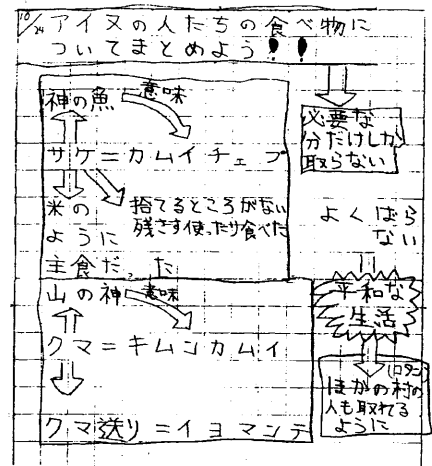 10/24 アイヌの人たちの食べ物に
ついてまとめよう!!
神の魚
意味
サケ=カムイチェプ
米の
ように
主食だった
捨てるところがない
残さす使ったり食べた
山の神
意味
クマ=キムンカムイ
クマ送り=イヨマンテ
必要な
分だけしか
取らない
よくばら
ない
平和な
生活
(コタン)
ほかの村の
人も取れる
ように